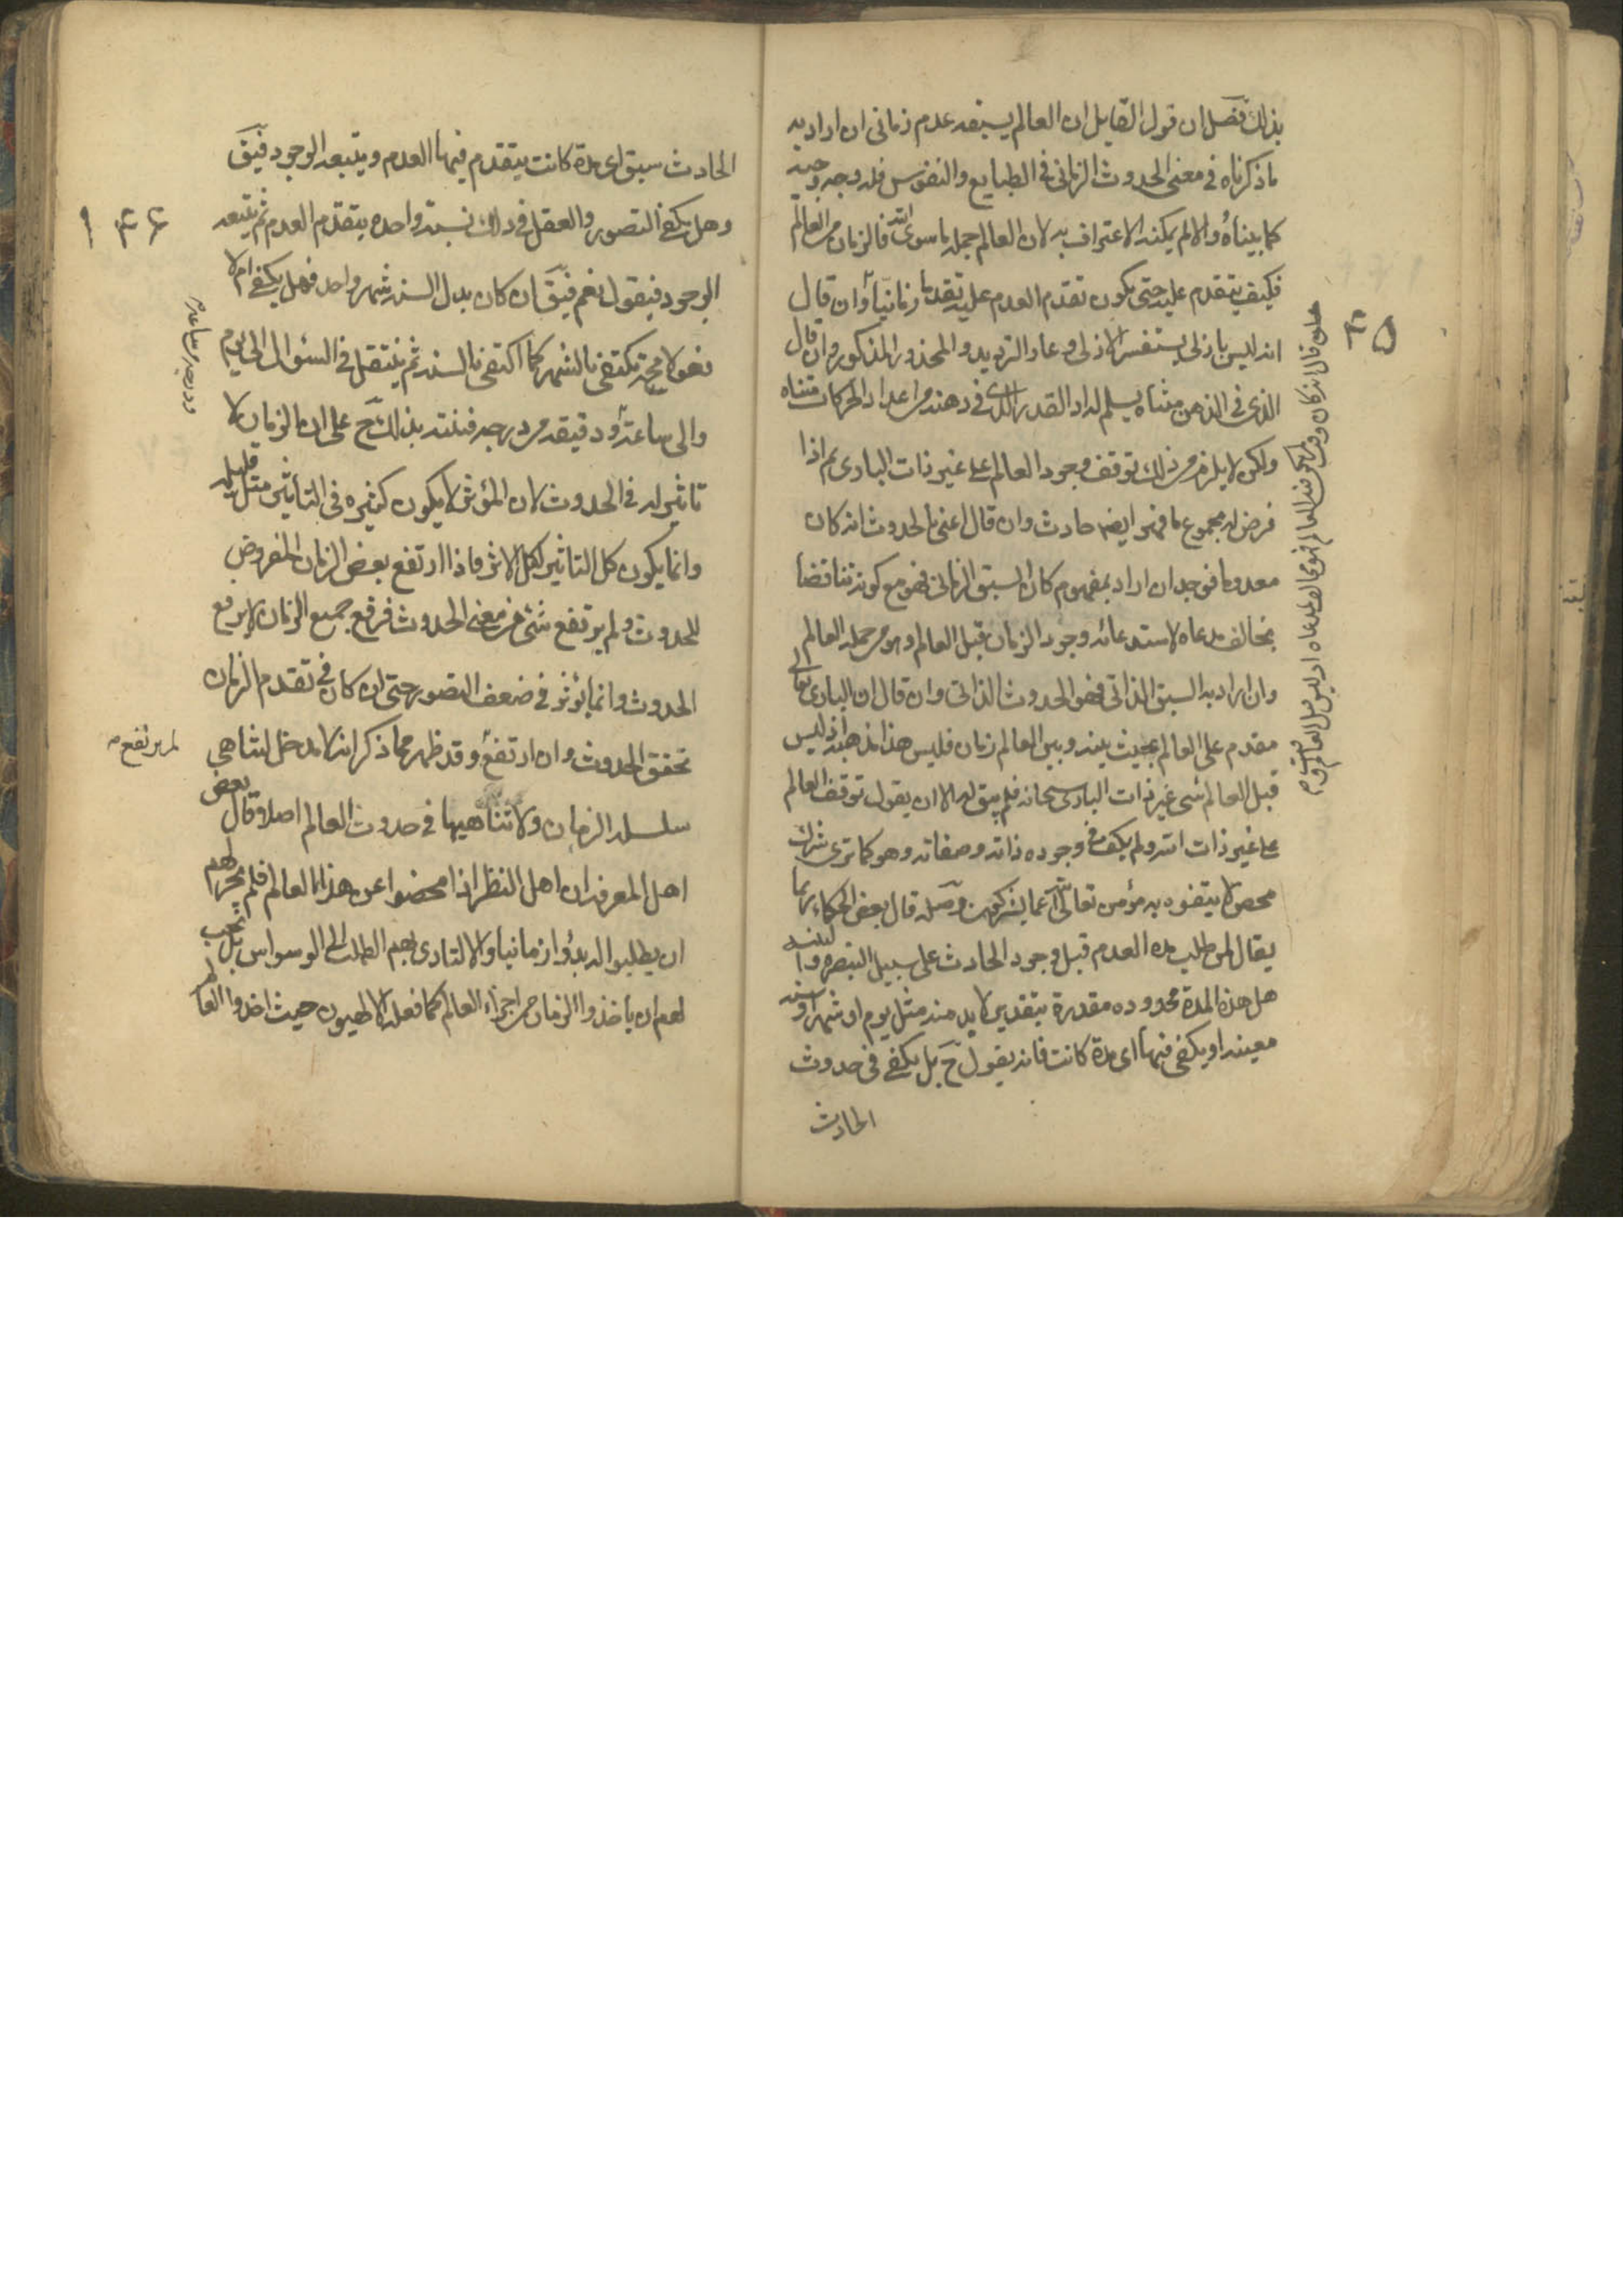 بذلك فصل ان قول القايل ان العالم يسبقه عدم زمانى ان اراد به
ما ذكرناه فى معنى الحدوث الزمانى فى الطبايع والنفوس فله وجه وجيه
كما بيناه والا لم يمكنه الاعتراف به لان العالم جملة ما سوى الله فالزمان من العالم
فكيف يتقدم عليه حتى يكون تقدم العدم عليه تقدما زمانيا وان قال
انه ليس بازلى يستفسر الازلى وعاد الترديد والمحذور المذكور وان قال
الذى فى الذهن متناه يسلم له ان القدر الذى فى ذهنه من اعداد الحركات متناه
ولكن لا يلزم من ذلك توقف وجود العالم على غير ذات البارى ثم اذا
فرض له مجموع ما فهو ايضا حادث وان قال اعنى بالحدوث انه كان
معدوما فوجد ان اراد بمفهوم كان السبق الزمانى فهو مع كونه تناقضا
يخالف مدعاه لاستدعائه وجود الزمان قبل العالم وهو من جملة العالم
وان اراد به السبق الذاتى فهو الحدوث الذاتى وان قال ان البارى تعالى
مقدم على العالم بحيث بينه وبين العالم زمان فليس هذا مذهبه اذ ليس
قبل العالم شى غير ذات البارى سبحانه فلم يبق له الا ان يقول توقف العالم
على غير ذات الله ولم يكف فى وجوده ذاته وصفاته وهو كما ترى شرك
محض لا يتفوه به مؤمن تعالى الله عما يشركون وصل قال بعض الحكماء ربما
يقال لمن طلب مدة العدم قبل وجود الحادث على سبيل التبصرة والتنبيه
هل هذه المدة محدودة مقدرة بتقدير لا بد منه مثل يوم او شهر او سنة
معينة او يكفى فيها اى مدة كانت فانه يقول ح بل يكفى فى حدوث
الحادث
٤٥
الحادث سبق اى مدة كانت يتقدم فيها العدم ويتبعه الوجود فيق
وهل يكفى التصور والعقل فى ذلك نسبة واحدة يتقدم العدم ثم يتبعه
الوجود فيقول نعم فيق ان كان بدل السنة شهر واحد فهل يكفى ام لا
فهو لا محة يكتفى بالشهر كما اكتفى بالسنة ثم ينتقل فى السئوال الى يوم
والى ساعة ودقيقة ودرجة فينتبه بذلك ح على ان الزمان لا
تاثير له فى الحدوث لان المؤثر لا يكون كثيره فى التأثير مثل قليله
وانما يكون كل التاثير لكل الاثر فاذا ارتفع بعض الزمان المفروض
للحدوث ولم يرتفع شئ من معنى الحدوث فرفع جميع الزمان لا يرفع
الحدوث وانما يؤثر فى ضعف التصور حتى ان كان فى تقدم الزمان
تحقق الحدوث وان ارتفع وقد ظهر مما ذكر انه لا مدخل لتناهى
سلسلة الزمان ولا تناهيها فى حدوث العالم اصلا وقال بعض
اهل المعرفة ان اهل النظر اذا محضوا عن هذا العالم فلم يجز لهم
ان يطلبوا له بدؤا زمانيا والا لتادى بهم الطلب الى الوسواس بل يجب
لهم ان ياخذوا الزمان من اجزاء العالم كما فعله الالهيون حيث اخذوا العالم
لم يرتفع
١ ٤٦